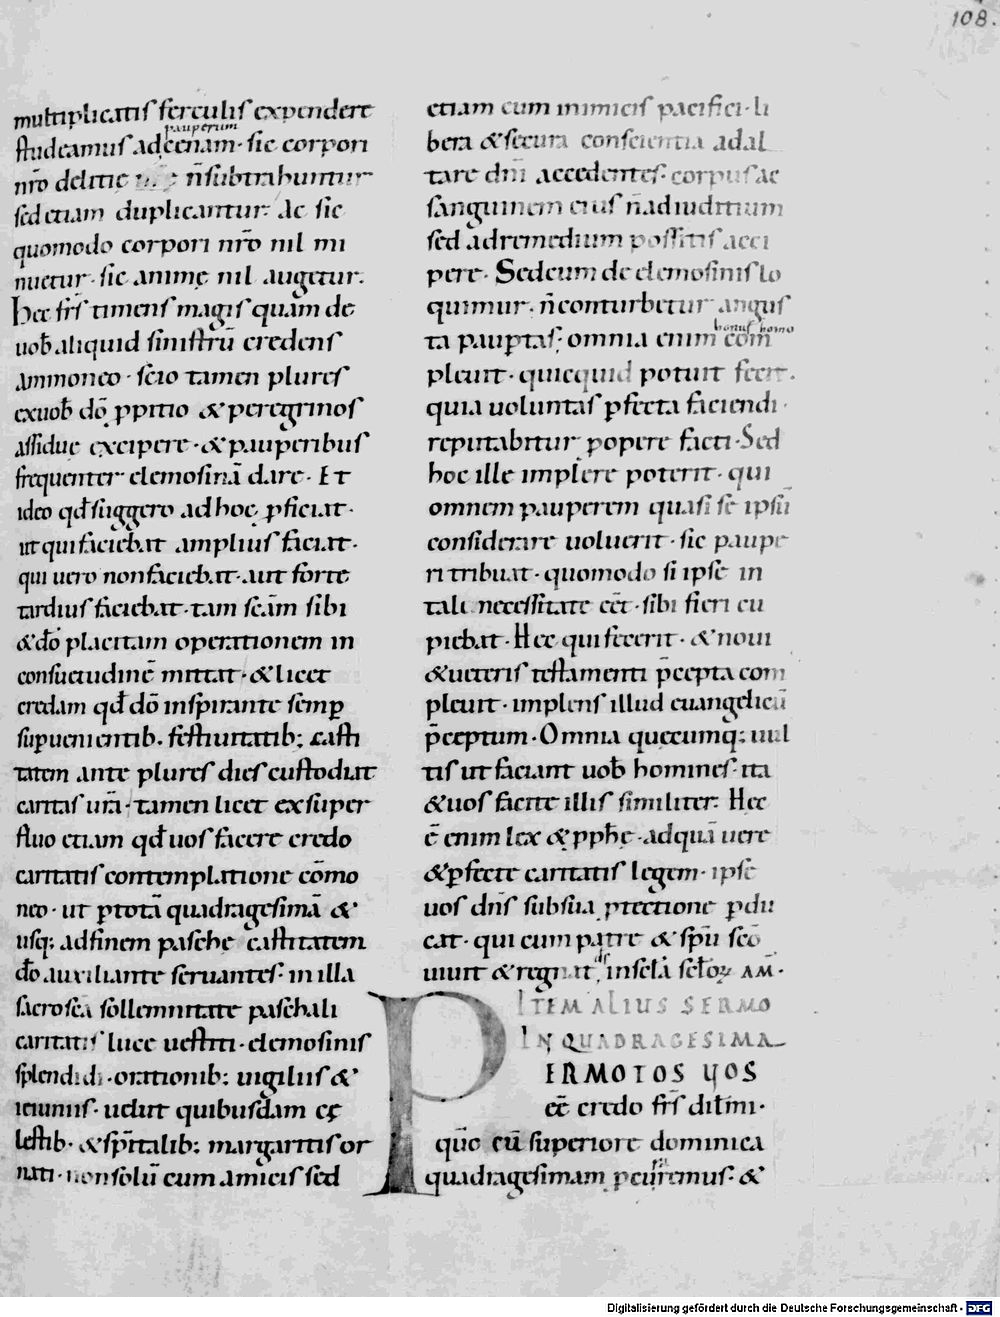 108.
multiplicatis ferculis expendere
pauperum
studeamus ad cenam · sic corpori
nr̄o delitię n̄ subtrahuntur
sed etiam duplicantur · Ac sic
quomodo corpori nr̄o nil mi
nuetur · sic animę nil augetur.
Hec fr̄s timens magis quam de
uob̄ aliquid sinistrū credens
ammoneo · scio tamen plures
ex uob̄ dō ꝓpitio & peregrinos
assidue excipere · & pauperibus
frequenter elemosinā dare · Et
ideo qđ suggero ad hoc ꝓficiat ·
ut qui faciebat amplius faciat ·
qui uero non faciebat · aut forte
tardius faciebat · tam sc̄am sibi
& dō placitam operationem in
consuetudinē mittat · & licet
credam qđ dō inspirante semꝑ
supuenientib. festiuitatib; casti
tatem ante plures dies custodiat
caritas ur̄a · tamen licet ex super
fluo etiam qđ uos facere credo
caritatis contemplatione cōmo
neo · ut ꝑ totā quadragesimā &
usq; ad finem paschę castitatem
dō auxiliante seruantes · in illa
sacrosc̄a sollemnitate paschali
caritatis luce uestiti · elemosinis
splendidi · orationib; uigiliis &
ieiuniis · uelut quibusdam cę
lestib. & sp̄italib; margaritis or
nati · non solū cum amicis sed
etiam cum inimicis pacifici · li
bera & secura conscientia ad al
tare dn̄i accedentes · corpus ac
sanguinem eius n̄ ad iuditium
sed ad remedium possitis acci
pere · Sed cum de elemosinis lo
quimur · n̄ conturbetur angus
bonus homo
ta pauꝑtas; omnia enim com
pleuit · quicquid potuit fecit ·
quia uoluntas ꝑfecta faciendi ·
reputabitur ꝓ opere facti · Sed
hoc ille implere poterit · qui
omnem pauperem quasi se ipsū
considerare uoluerit · sic paupe
ri tribuat · quomodo si ipse in
tali necessitate eēt · sibi fieri cu
piebat · Hec qui fecerit · & noui
& ueteris testamenti p̄cepta com
pleuit · implens illud euangelicū
p̄ceptum · Omnia quecumq; uul
tis ut faciant uob̄ homines · ita
& uos facite illis similiter · Hec
ē enim lex & ꝓphe · ad quā uere
& ꝑfecte caritatis legem · ipse
uos dn̄s sub sua ꝓtectione ꝑdu
cat · qui cum patre & sp̄u sc̄o
ds̄
uiuit & regnat in sc̄la sc̄loꝝ AM̄ ·
ITEM ALIUS SERMO
IN QUADRAGESIMA
PIRMOTOS UOS
eē credo fr̄s dil̄mi ·
quō cū superiore dominica
quadragesimam pcurremus · &